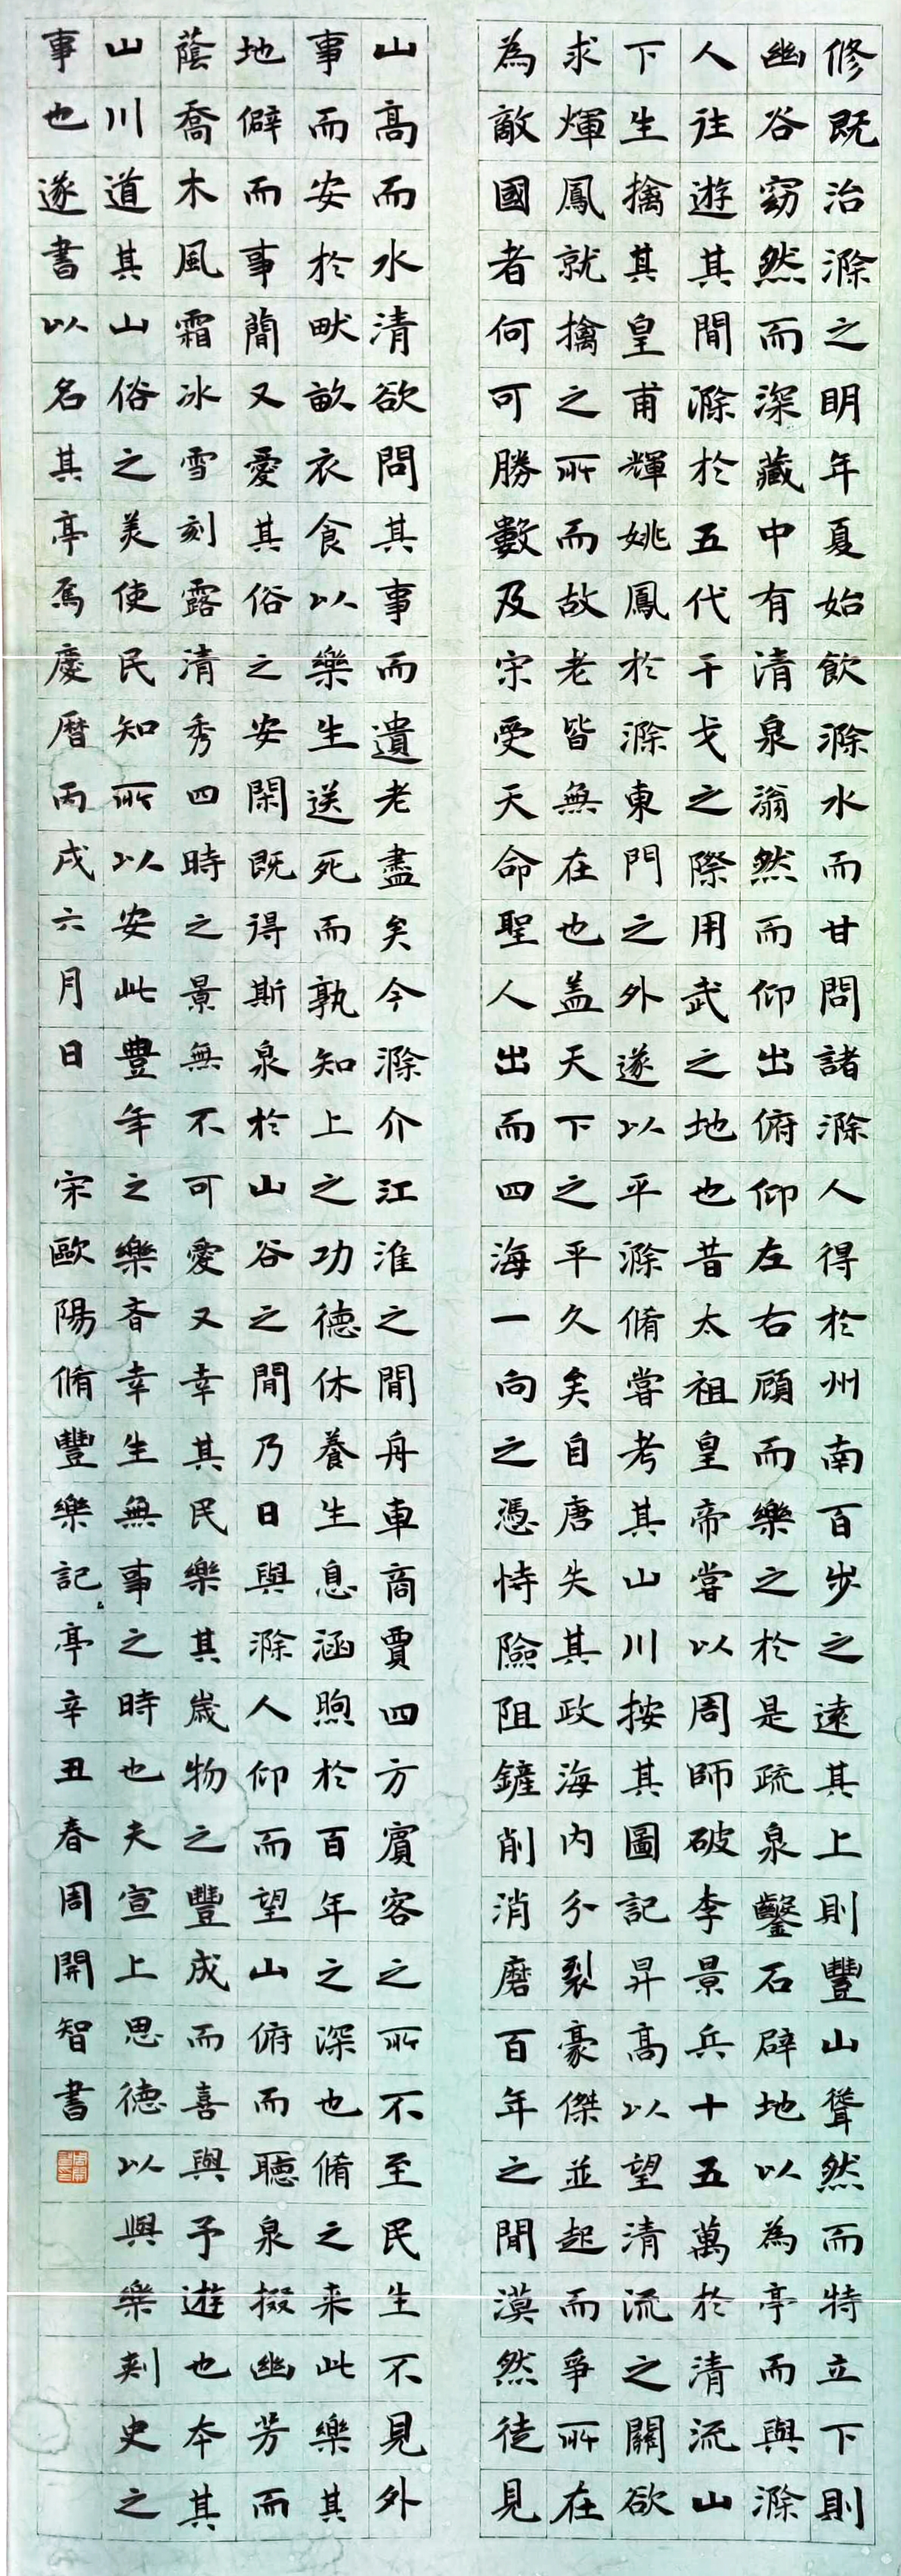 修既治滁之明年夏始飲滁水而甘問諸滁人得於州南百步之遠其上則豐山聳然而特立下則
幽谷窈然而深藏中有清泉滃然而仰出俯仰左右顧而樂之於是疏泉鑿石辟地以為亭而與滁
人往遊其間滁於五代干戈之際用武之地也昔太祖皇帝嘗以周師破李景兵十五萬於清流山
下生擒其皇甫輝姚鳳於滁東門之外遂以平滁脩嘗考其山川按其圖記昇高以望清流之關欲
求煇鳳就擒之所而故老皆無在也盖天下之平久矣自唐失其政海內分裂豪傑並起而爭所在
為敵國者何可勝數及宋受天命聖人出而四海一向之憑恃險阻鏟削消磨百年之間漠然徒見
山高而水清欲問其事而遺老盡矣今滁介江淮之間舟車商賈四方賓客之所不至民生不見外
事而安於畎畝衣食以樂生送死而孰知上之功德休養生息涵煦於百年之深也脩之来此樂其
地僻而事簡又愛其俗之安閑既得斯泉於山谷之間乃日與滁人仰而望山俯而聽泉掇幽芳而
蔭喬木風霜冰雪刻露清秀四時之景無不可愛又幸其民樂其歲物之豐成而喜與予遊也本其
山川道其山俗之美使民知所以安此豊年之樂者幸生無事之時也夫宣上思德以與樂刺史之
事也遂書以名其亭焉慶曆丙戌六月日 宋歐陽脩豐樂記亭辛丑春周開智書